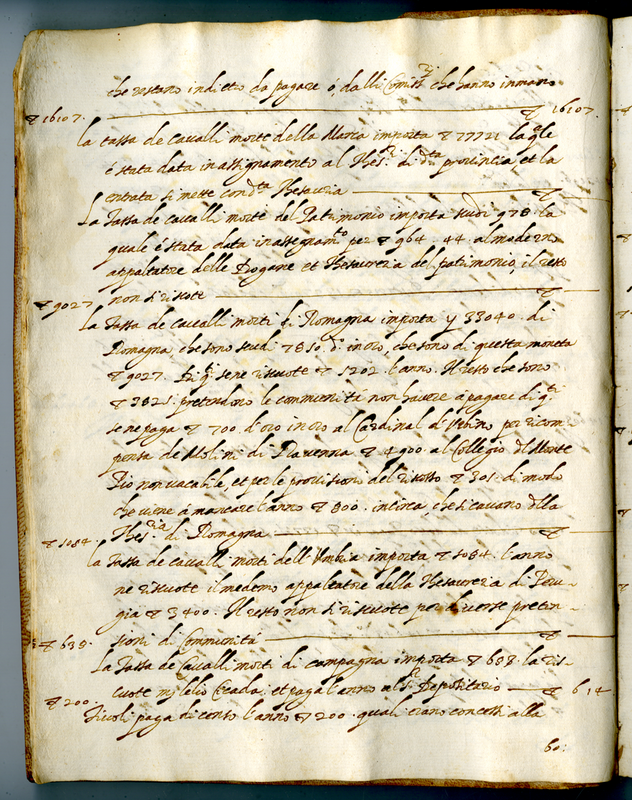 che restano indietro da pagare ó, dalli Comiss.rij che hanno in mano
▽ 16107. ▽ 16107.
La tassa de Cavalli morti della Marca importa ▽ 77721 la q.le
é stata data in assignamento al Thes.ri di d.ta provintia et la
entrata si mette con d.ta Thesauria ▽
La Tassa de cavalli morti del Patrimonio importa scudi 978. la
quale é stata data in assegnam.to per ▽ 964. 44. al moderno
appaltatore delle Dogane et Thesoreria del patrimonio, il resto
▽ 9027 non si riscote ▽
La Tassa de Cavalli morti di Romagna importa 33040. di
Romagna che sono scudi 7810. d'oro in oro, che sono di questa moneta
▽ 9027. Di q. se ne riscuote ▽ 5202 l'anno. Il resto che sono
▽ 3825. pretendono le communitá non havere á pagare di q.ti
se ne paga ▽ 700. d'oro in oro al Cardinal d'Urbino per ricom
pensa de Molini di Ravenna ▽ 4900. al Collegio d' Monte
Pio non vacabile, et per le provisioni del risosso ▽ 301. di modo
che viene á mancare l'anno ▽ 800. incirca, che si cavano d'lla
Thes.ria di Romagna ▽
▽ 5084. La Tassa de cavalli morti dell'Umbria importa ▽ 5084. l'anno
ne riscuote il medemo appaltatore della Thesaureria di Peru-
gia ▽ 3400. Il resto non si riscuote per diverse preten-
▽ 639. sioni di Communitá ▽
La Tassa de Cavalli morti di campagna importa ▽ 638. la ris-
cuote m. lelio Cicada: et paga l'anno al S.r Depositario ▽ 614
▽ 200. Tivoli paga di censo l'anno ▽ 200. quali erano concessi alla
60.